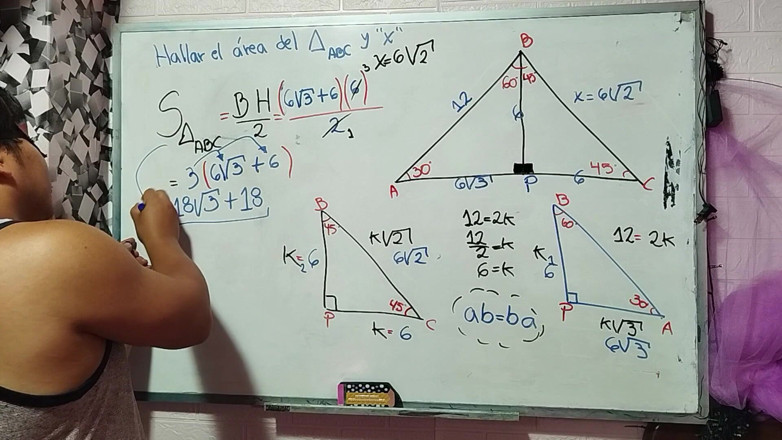 Hallar el área del △ABC y "x"
x=6√2
S△ABC = BH/2 = (6√3+6)(6)/2
3
1
= 3(6√3+6)
18√3+18
B
60° 45°
12
6
x=6√2
30°
45°
A
6√3
P
6
C
B
45°
K=6
K√2
6√2
45°
P
K=6
C
12=2K
12/2=K
6=K
ab=ba
B
60°
K
6
12=2K
30°
P
K√3
A
6√3